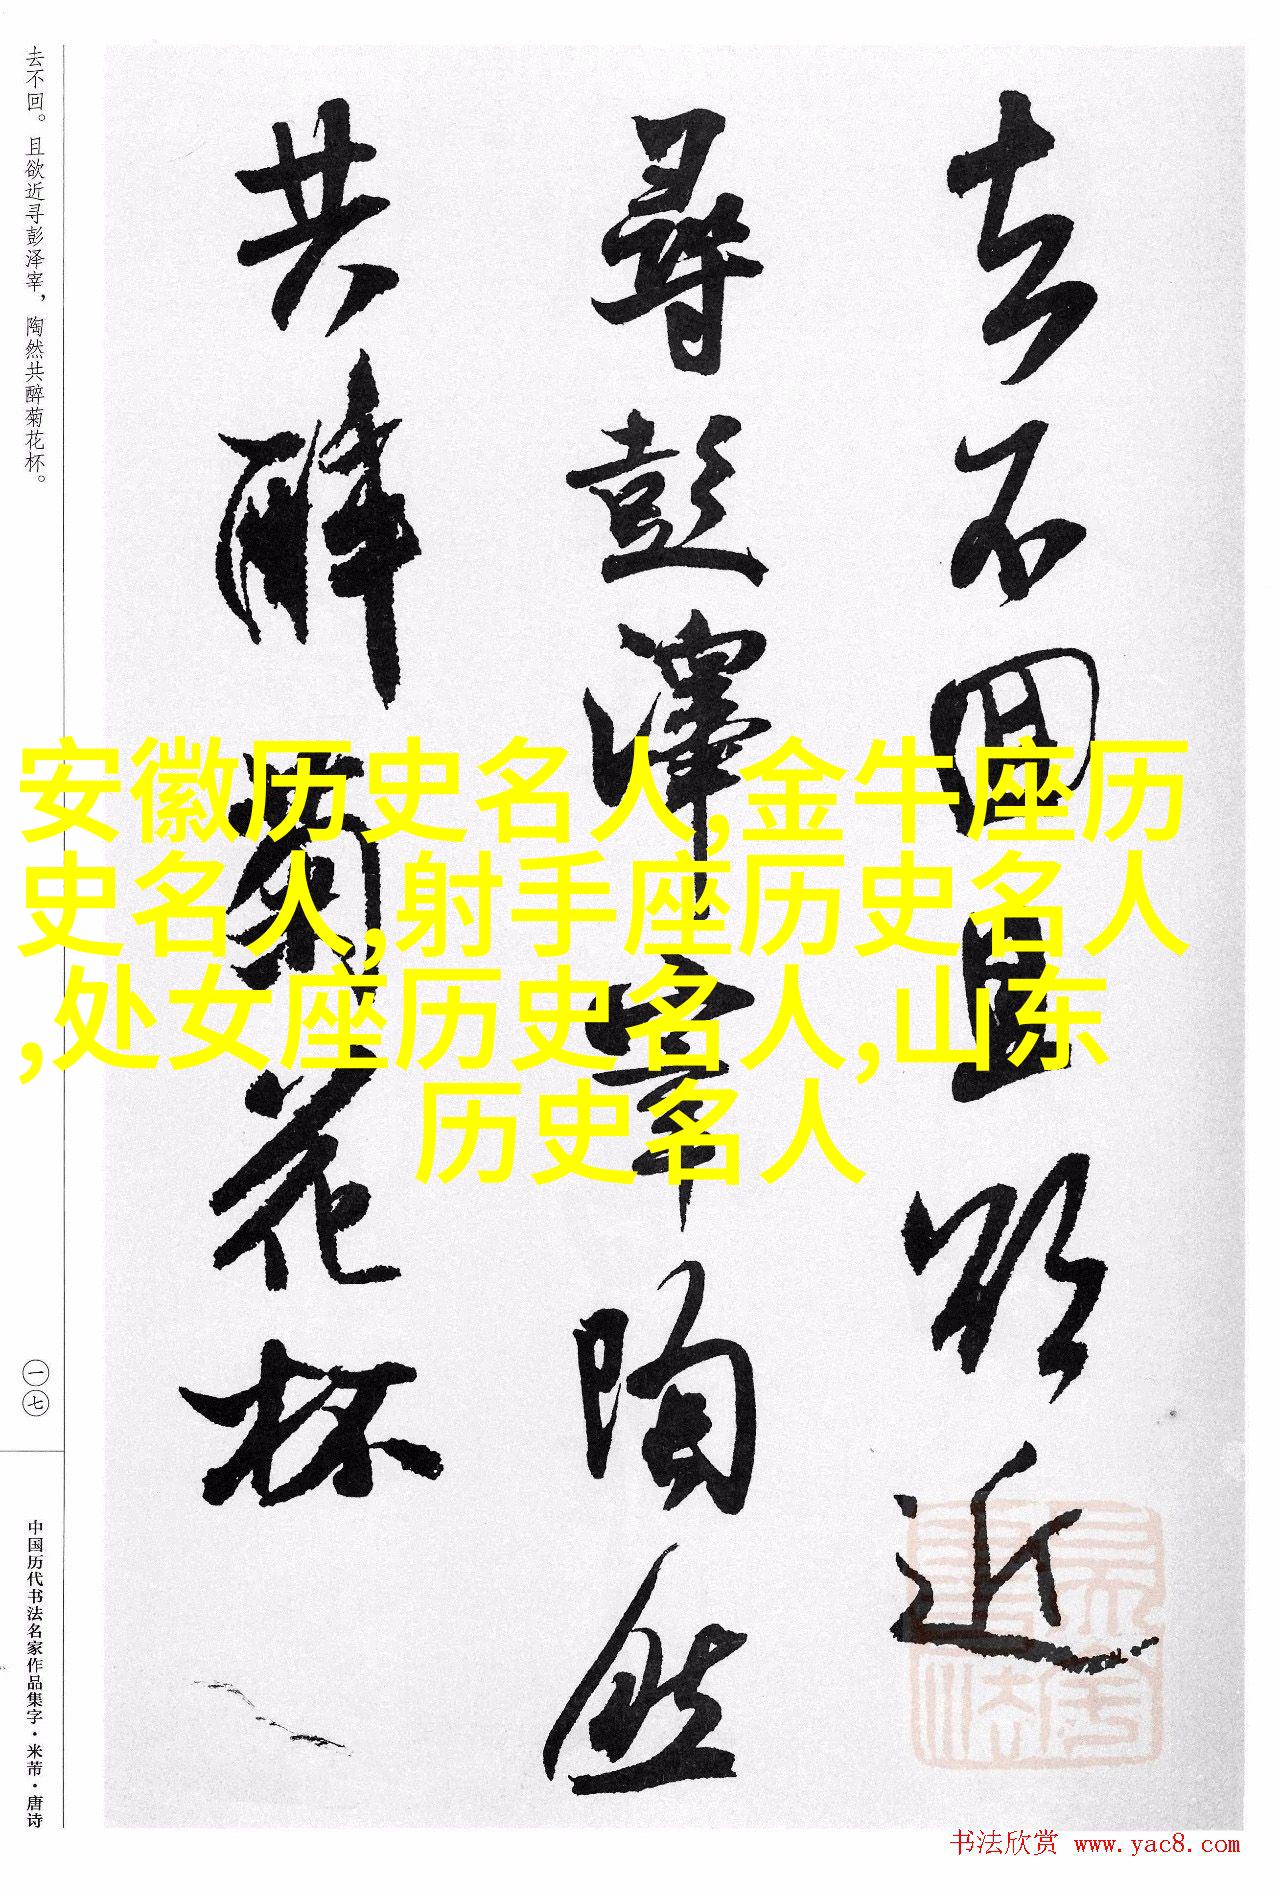 去不回且欲近
尋彭澤宰陶然
共醉菊花杯
去不回。且欲近寻彭泽宰，陶然共醉菊花杯。
一七
中国历代书法名家作品集字·米芾·唐诗
安徽历史名人,金牛座历
史名人,射手座历史名人
,处女座历史名人,山东
历史名人
书法欣赏 www.yac8.com